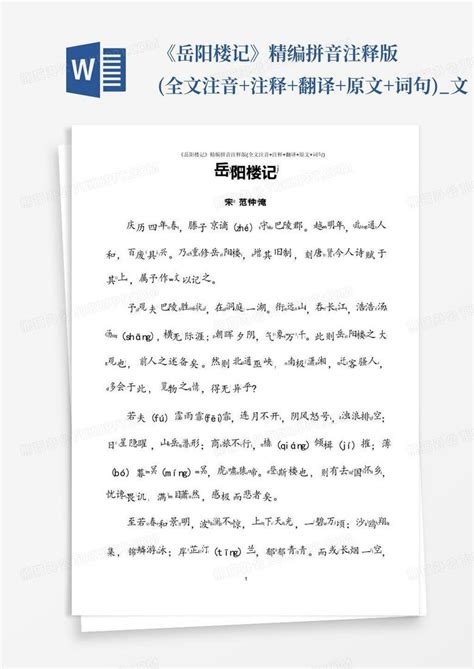 W
《岳阳楼记》精编拼音注释版
(全文注音+注释+翻译+原文+词句)_文
《岳阳楼记》精编拼音注释版(全文注音+注释+翻译+原文+词句)
岳阳楼记
宋 范仲淹
庆历四年春,滕子京谪(zhé)守巴陵郡。越明年,政通人
和,百废具兴。乃重修岳阳楼,增其旧制,刻唐贤今人诗赋于
其上,属予作文以记之。
予观夫巴陵胜状,在洞庭一湖。衔远山,吞长江,浩浩汤
汤(shāng),横无际涯;朝晖夕阴,气象万千。此则岳阳楼之大
观也,前人之述备矣。然则北通巫峡,南极潇湘,迁客骚人,
多会于此,览物之情,得无异乎?
若夫(fú)霪雨霏(fēi)霏,连月不开,阴风怒号,浊浪排空;
日星隐曜,山岳潜形;商旅不行,樯(qiáng)倾楫(jí)摧;薄
(bó)暮冥(míng)冥,虎啸猿啼。登斯楼也,则有去国怀乡,
忧谗畏讥,满目萧然,感极而悲者矣。
至若春和景明,波澜不惊,上下天光,一碧万顷;沙鸥翔
集,锦鳞游泳;岸芷汀(tīng)兰,郁郁青青。而或长烟一空,
1